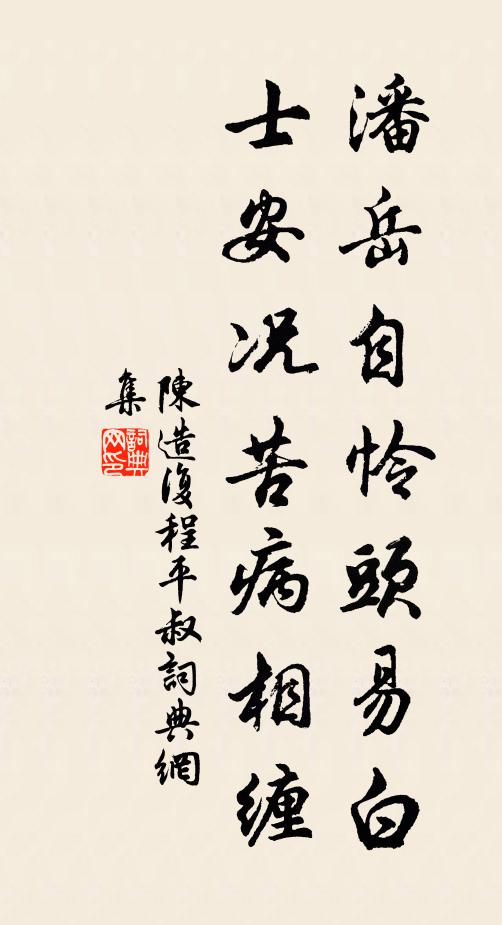 潘岳自怜頭易白
士安况苦病相纏
陳造復程平叔詞典網
集
詞典网印